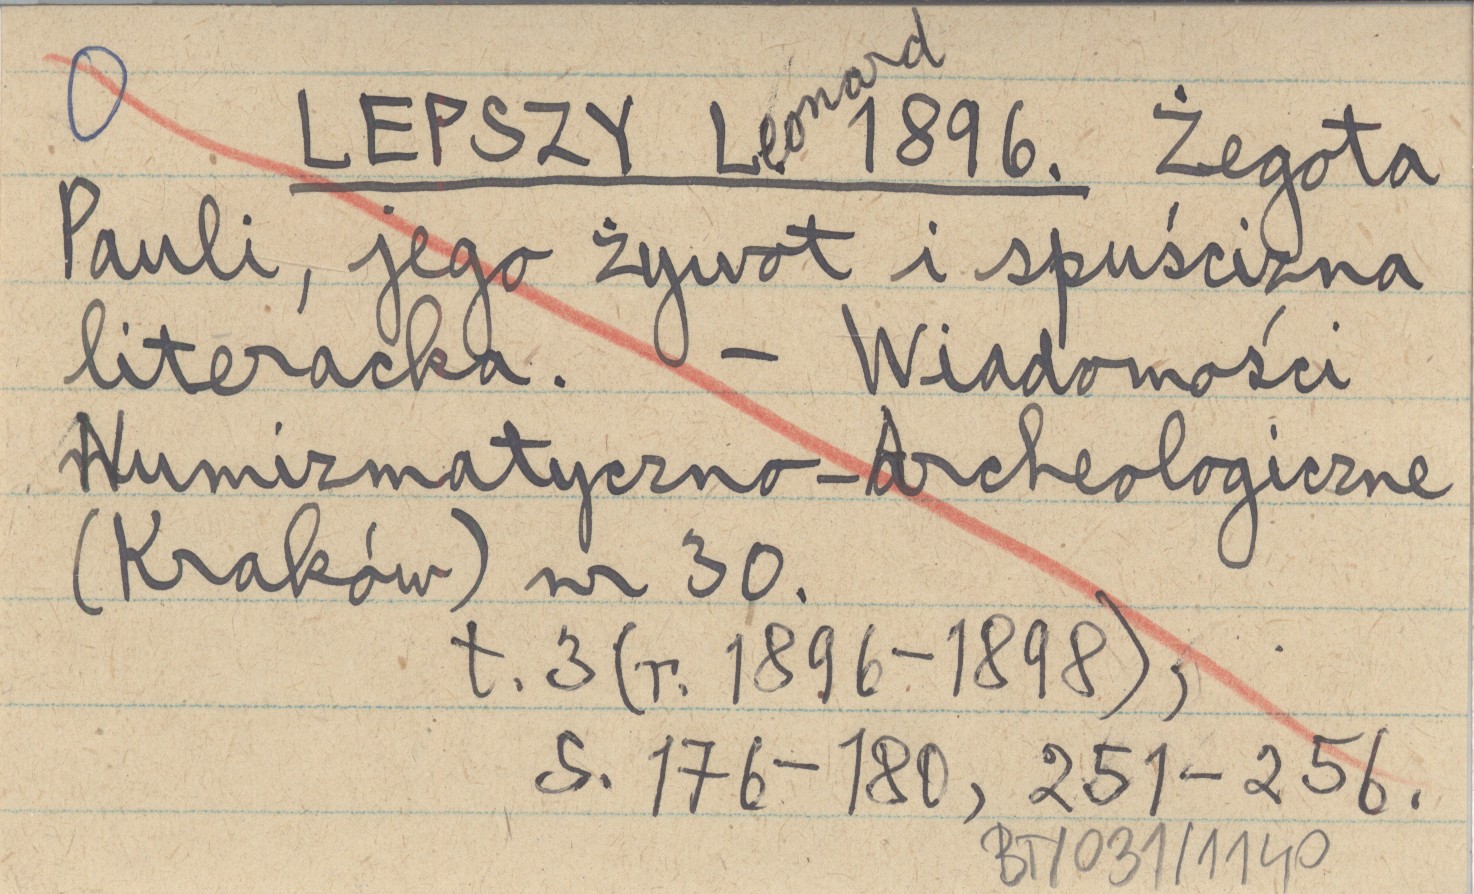 LEPSZY Leonard 1896. Żegota
Pauli, jego żywot i spuścizna
literacka. – Wiadomości
Numizmatyczno-Archeologiczne
(Kraków) nr 30.
t. 3 (r. 1896–1898),
s. 176–180, 251–256.
BTI/031/1140